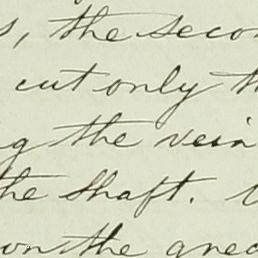 s, the secon
cut only th
g the vein
the shaft.
on the grea